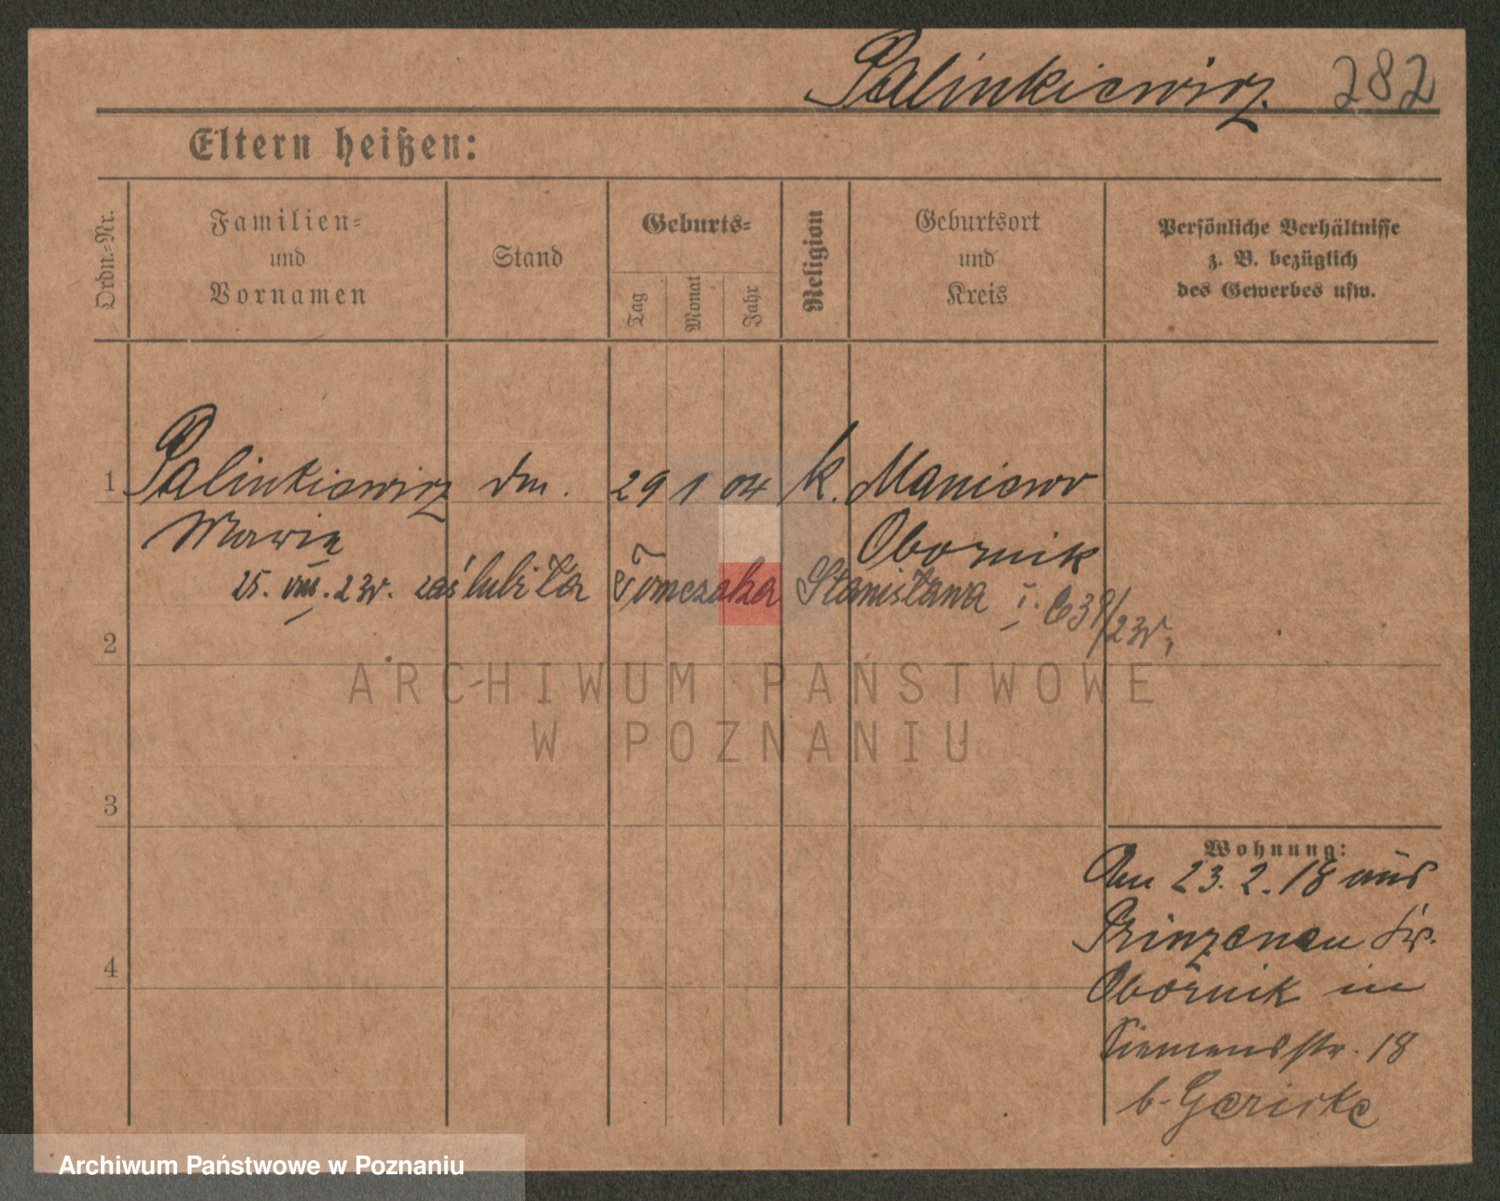 Palinkiewicz. 282
Eltern heißen:
Ordn.-Nr.
Familien-
und
Vornamen
Stand
Geburts-
Tag
Monat
Jahr
Religion
Geburtsort
und
Kreis
Persönliche Verhältnisse
z. B. bezüglich
des Gewerbes usw.
1 Palinkiewicz dm. 29 1 04 k. Maniewo
Maria Obornik
25. VIII. 23r. zaślubiła Tomczaka Stanisława
2
ARCHIWUM PAŃSTWOWE
W POZNANIU
3
Wohnung:
Am 23.2.18 aus
Prinzenau Kr.
4
Obornik in
Siemensstr. 18
b. Gericke
Archiwum Państwowe w Poznaniu